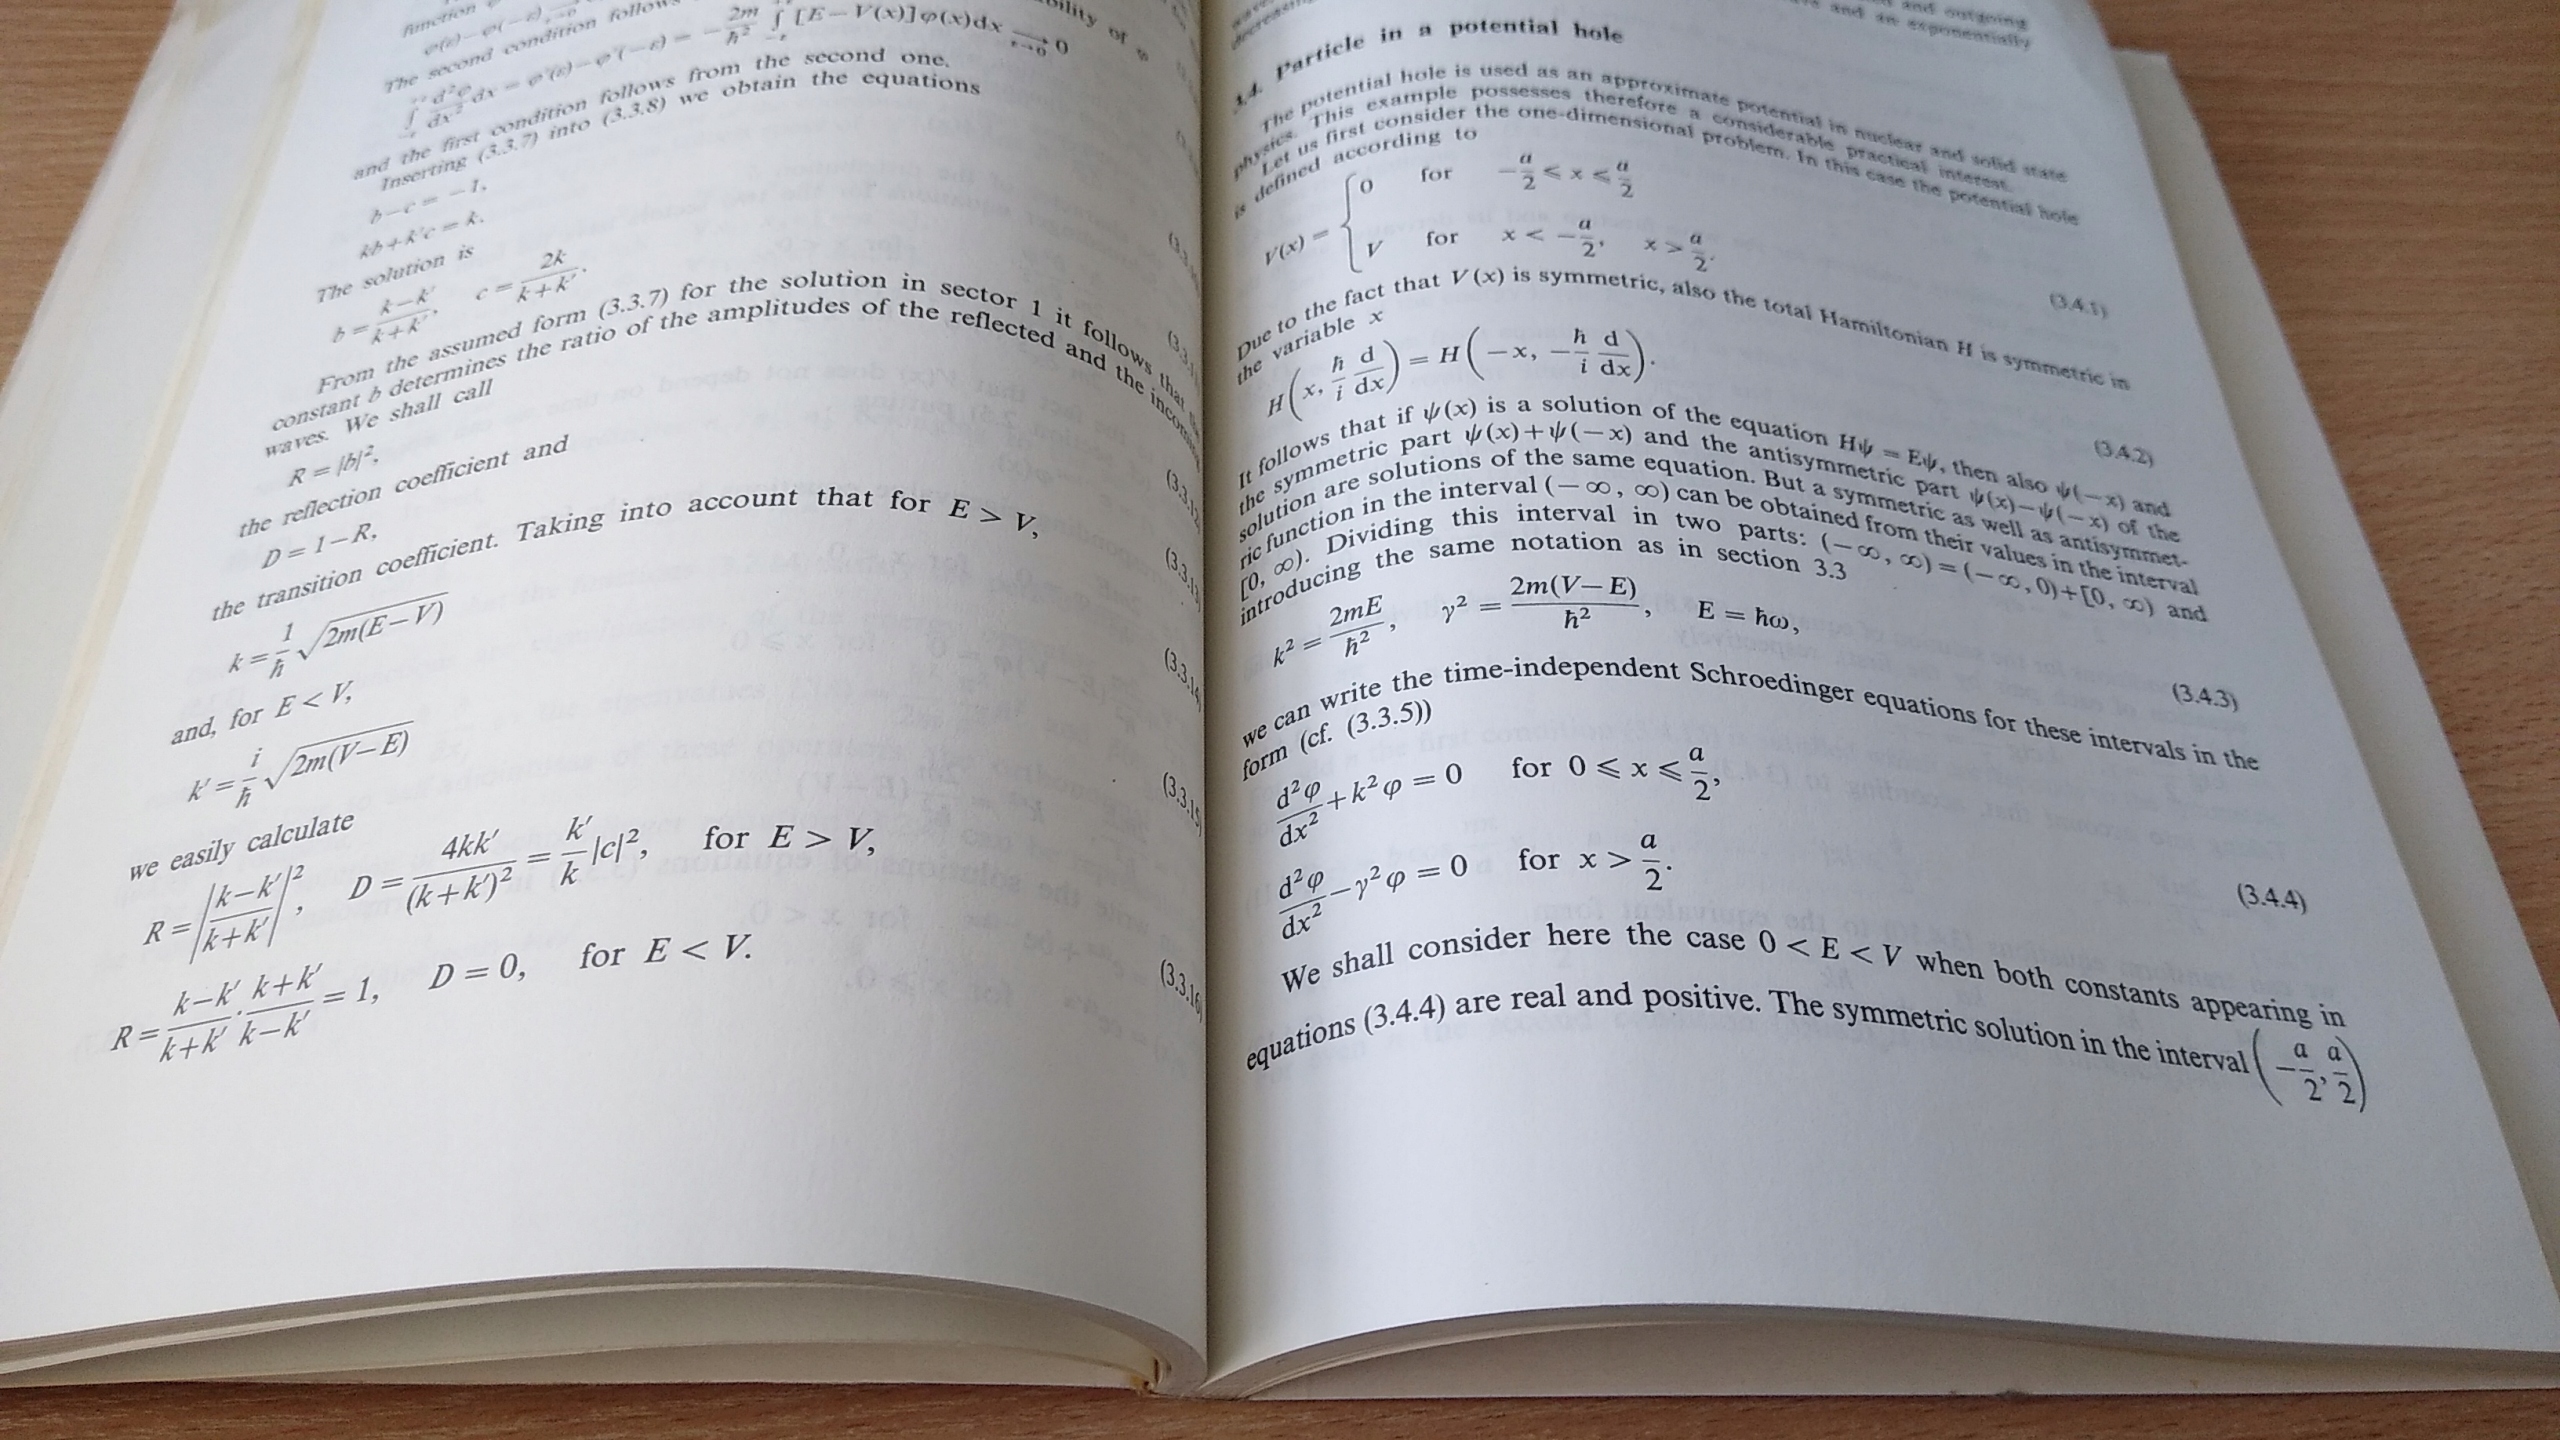 function
φ(ε)−φ(−ε)
The second condition follows
∫ d²φ/dx² dx = φ′(ε)−φ′(−ε) = −2m/ħ² ∫ [E−V(x)]φ(x)dx → 0
and the first condition follows from the second one.
Inserting (3.3.7) into (3.3.8) we obtain the equations
b−c = −1,
kb+k′c = k.
The solution is
b = (k−k′)/(k+k′), c = 2k/(k+k′).
From the assumed form (3.3.7) for the solution in sector 1 it follows that the
constant b determines the ratio of the amplitudes of the reflected and the incoming
waves. We shall call
R = |b|²,
the reflection coefficient and
D = 1−R,
the transition coefficient. Taking into account that for E > V,
k = 1/ħ √2m(E−V)
and, for E < V,
k′ = i/ħ √2m(V−E)
we easily calculate
R = |(k−k′)/(k+k′)|², D = 4kk′/(k+k′)² = k′/k |c|², for E > V,
R = (k−k′)/(k+k′) · (k+k′)/(k−k′) = 1, D = 0, for E < V.
and outgoing
and an exponentially
3.4. Particle in a potential hole
The potential hole is used as an approximate potential in nuclear and solid state
physics. This example possesses therefore a considerable practical interest.
Let us first consider the one-dimensional problem. In this case the potential hole
is defined according to
V(x) = { 0 for −a/2 ⩽ x ⩽ a/2
V for x < −a/2, x > a/2.
(3.4.1)
Due to the fact that V(x) is symmetric, also the total Hamiltonian H is symmetric in
the variable x
H(x, ħ/i d/dx) = H(−x, −ħ/i d/dx).
(3.4.2)
It follows that if ψ(x) is a solution of the equation Hψ = Eψ, then also ψ(−x) and
the symmetric part ψ(x)+ψ(−x) and the antisymmetric part ψ(x)−ψ(−x) of the
solution are solutions of the same equation. But a symmetric as well as antisymmet-
ric function in the interval (−∞, ∞) can be obtained from their values in the interval
[0, ∞). Dividing this interval in two parts: (−∞, ∞) = (−∞, 0)+[0, ∞) and
introducing the same notation as in section 3.3
k² = 2mE/ħ², γ² = 2m(V−E)/ħ², E = ħω,
(3.4.3)
we can write the time-independent Schroedinger equations for these intervals in the
form (cf. (3.3.5))
d²φ/dx² + k²φ = 0 for 0 ⩽ x ⩽ a/2,
d²φ/dx² − γ²φ = 0 for x > a/2.
(3.4.4)
We shall consider here the case 0 < E < V when both constants appearing in
equations (3.4.4) are real and positive. The symmetric solution in the interval (−a/2, a/2)